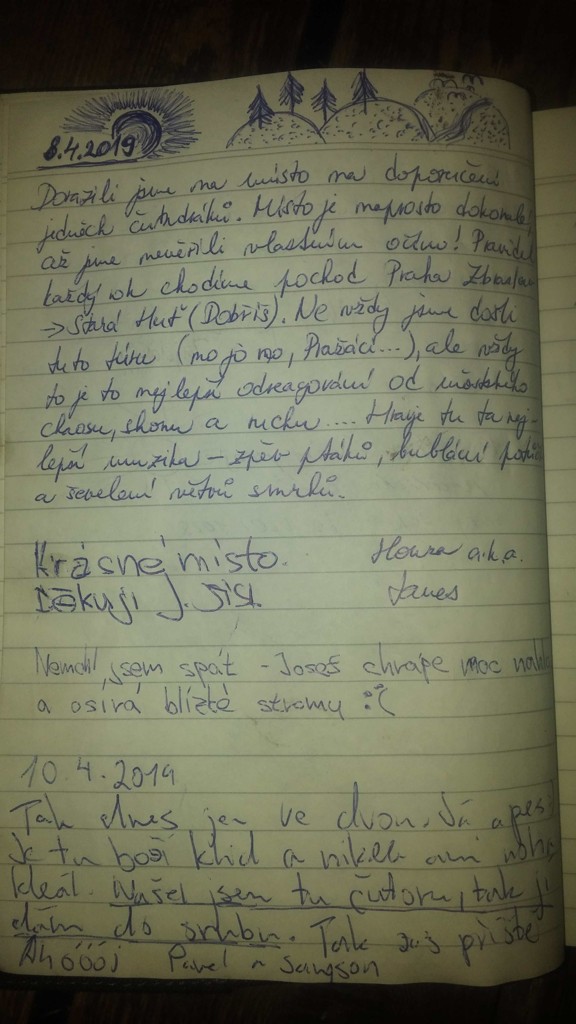 8.4.2019
Dorazili jsme na místo na doporučení
jedněch čundráků. Místo je naprosto dokonalé,
až jsme nevěřili vlastním očím! Pravidel
každý rok chodíme pochod Praha Zbraslav
→ Stará Huť (Dobříš). Ne vždy jsme došli
tuto túru (no jo no, Pražáci...), ale vždy
to je to nejlepší odreagování od městského
chaosu, shonu a ruchu.... Hraje tu ta nej-
lepší muzika – zpěv ptáků, bublání potůč
a ševelení větví smrků.
Krásné místo. Honza a.k.a.
Děkuji J. James
Nemohl jsem spát - Josef chrápe moc nahla
a osírá blízké stromy :(
10.4.2019
Tak dnes jen ve dvou. Já a pes.
Je tu boží klid a nikde ani noha
Ideál. Našel jsem tu čutoru, tak ji
dám do srubu. Tak zas příště
Ahóóój Pavel a Samson